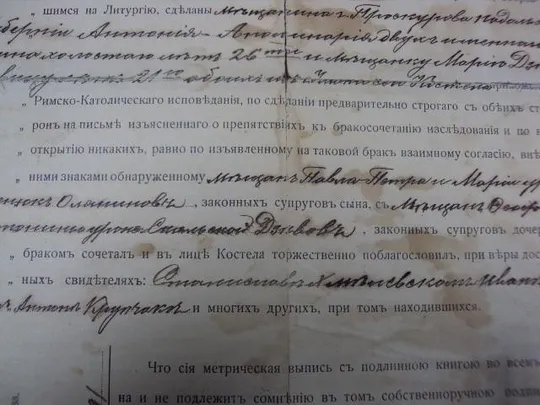 шимся на Литургію, сдѣланы мѣщанина г. Проскурова Подоль
берніи Антонія-Аполинарія двухъ именнаго
на холостаго лѣтъ 26ти и мѣщанку Марію Дз
21го обоихъ
„ Римско-Католическаго исповѣданія, по сдѣланіи предварительно строгаго съ обѣихъ ст
„ ронъ на письмѣ изъясненнаго о препятствіяхъ къ бракосочетанію изслѣдованія и по н
„ открытію никакихъ, равно по изъявленному на таковой бракъ взаимному согласію, внѣ
„ ними знаками обнаруженному мѣщанъ Павла-Петра и Маріи ур
Оланиновъ, законныхъ супруговъ сына, съ мѣщанъ Ѳеоф
уров. Скальской Дзѣвовъ, законныхъ супруговъ дочер
„ бракомъ сочеталъ и въ лицѣ Костела торжественно поблагословилъ, при вѣры дос
„ ныхъ свидѣтеляхъ: Станиславѣ Хмѣлевскомъ, Иван
Антонѣ Крупчакѣ и многихъ другихъ, при томъ находившихся.
Что сія метрическая выпись съ подлинною книгою во всемъ
на и не подлежитъ сомнѣнію въ томъ собственноручною подпи